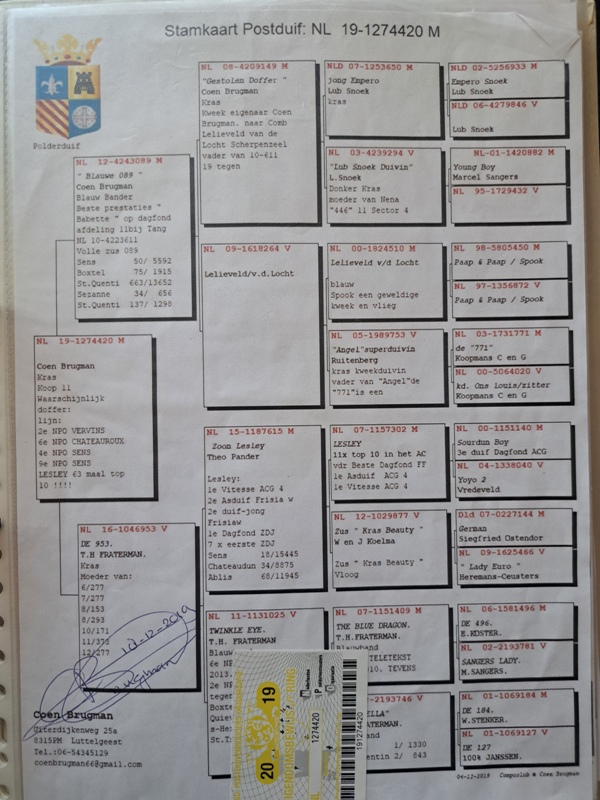 Stamkaart Postduif: NL 19-1274420 M
Polderduif
NL 19-1274420 M
Coen Brugman
Kras
Koop 11
Waarschijnlijk
doffer:
lijn:
2e NPO VERVINS
6e NPO CHATEAUROUX
4e NPO SENS
9e NPO SENS
LESLEY 63 maal top
10 !!!!
NL 12-4243089 M
" Blauwe 089 "
Coen Brugman
Blauw Bander
Beste prestaties "
Babette " op dagfond
afdeling 11bij Tang
NL 10-4223611
Volle zus 089
Sens 50/ 5592
Boxtel 75/ 1915
St.Quenti 663/13652
Sezanne 34/ 656
St.Quenti 137/ 1298
NL 16-1046953 V
DE 953.
T.H FRATERMAN.
Kras
Moeder van:
6/277
7/277
8/153
8/293
10/171
11/373
12/277
10-12-2019
NL 08-4209149 M
"Gestolen Doffer "
Coen Brugman
Kras
Kweek eigenaar Coen
Brugman. naar Comb
Lelieveld van de
Locht Scherpenzeel
vader van 10-611
19 tegen
NL 09-1618264 V
Lelieveld/v.d.Locht
NL 15-1187615 M
Zoon Lesley
Theo Pander
Lesley:
1e Vitesse ACG 4
2e Asduif Frisia W
2e duif-jong
Frisiaw
1e Dagfond ZDJ
7 x eerste ZDJ
Sens 18/15445
Chateaudun 34/8875
Ablis 68/11945
NL 11-1131025 V
TWINKLE EYE.
T.H. FRATERMAN
Blauw
6e NP
2013.
2e NP
tegen
Boxte
Quiev
s-Her
St.T
NLD 07-1253650 M
jong Empero
Lub Snoek
kras
NL 03-4239294 V
"Lub Snoek Duivin"
L.Snoek
Donker Kras
moeder van Nena
"446" 11 Sector 4
NL 00-1824510 M
Lelieveld v/d Locht
blauw
Spook een geweldige
kweek en vlieg
NL 05-1989753 V
"Angel"superduivin
Ruitenberg
kras kweekduivin
vader van "Angel"de
"771"is een
NL 07-1157302 M
LESLEY
11x top 10 in het AC
vdr Beste Dagfond FF
1e Asduif ACG 4
1e Vitesse ACG 4
NL 12-1029877 V
Zus " Kras Beauty "
W en J Koelma
Zus " Kras Beauty "
Vloog
NL 07-1151409 M
THE BLUE DRAGON.
T.H.FRATERMAN.
Blauwband
TELETEKST
10. TEVENS
-2193746 V
ELLA"
ATERMAN.
nd
1/ 1330
entin 2/ 843
NLD 02-5256933 M
Empero Snoek
Lub Snoek
NLD 06-4279846 V
Lub Snoek
NL-01-1420882 M
Young Boy
Marcel Sangers
NL 95-1729432 V
NL 98-5805450 M
Paap & Paap / Spook
NL 97-1356872 V
Paap & Paap / Spook
NL 03-1731771 M
de "771"
Koopmans C en G
NL 00-5064020 V
kd. Ons Louis/zitter
Koopmans C en G
NL 00-1151140 M
Sourdun Boy
3e duif Dagfond ACG
NL 04-1338040 V
Yoyo 2
Vredeveld
Dld 07-0227144 M
German
Siegfried Ostendor
NL 09-1625466 V
" Lady Euro "
Heremans-Ceusters
NL 06-1581496 M
DE 496.
E.KOSTER.
NL 02-2193781 V
SANGERS LADY.
M.SANGERS.
NL 01-1069184 M
DE 184.
W.STENKER.
NL 01-1069127 V
DE 127
100% JANSSEN.
Coen Brugman
Uiterdijkenweg 25a
8315PM Luttelgeest
Tel.:06-54345129
coenbrugman66@gmail.com
20 19
1274420
191274420
04-12-2019 Compuclub & Coen Brugman